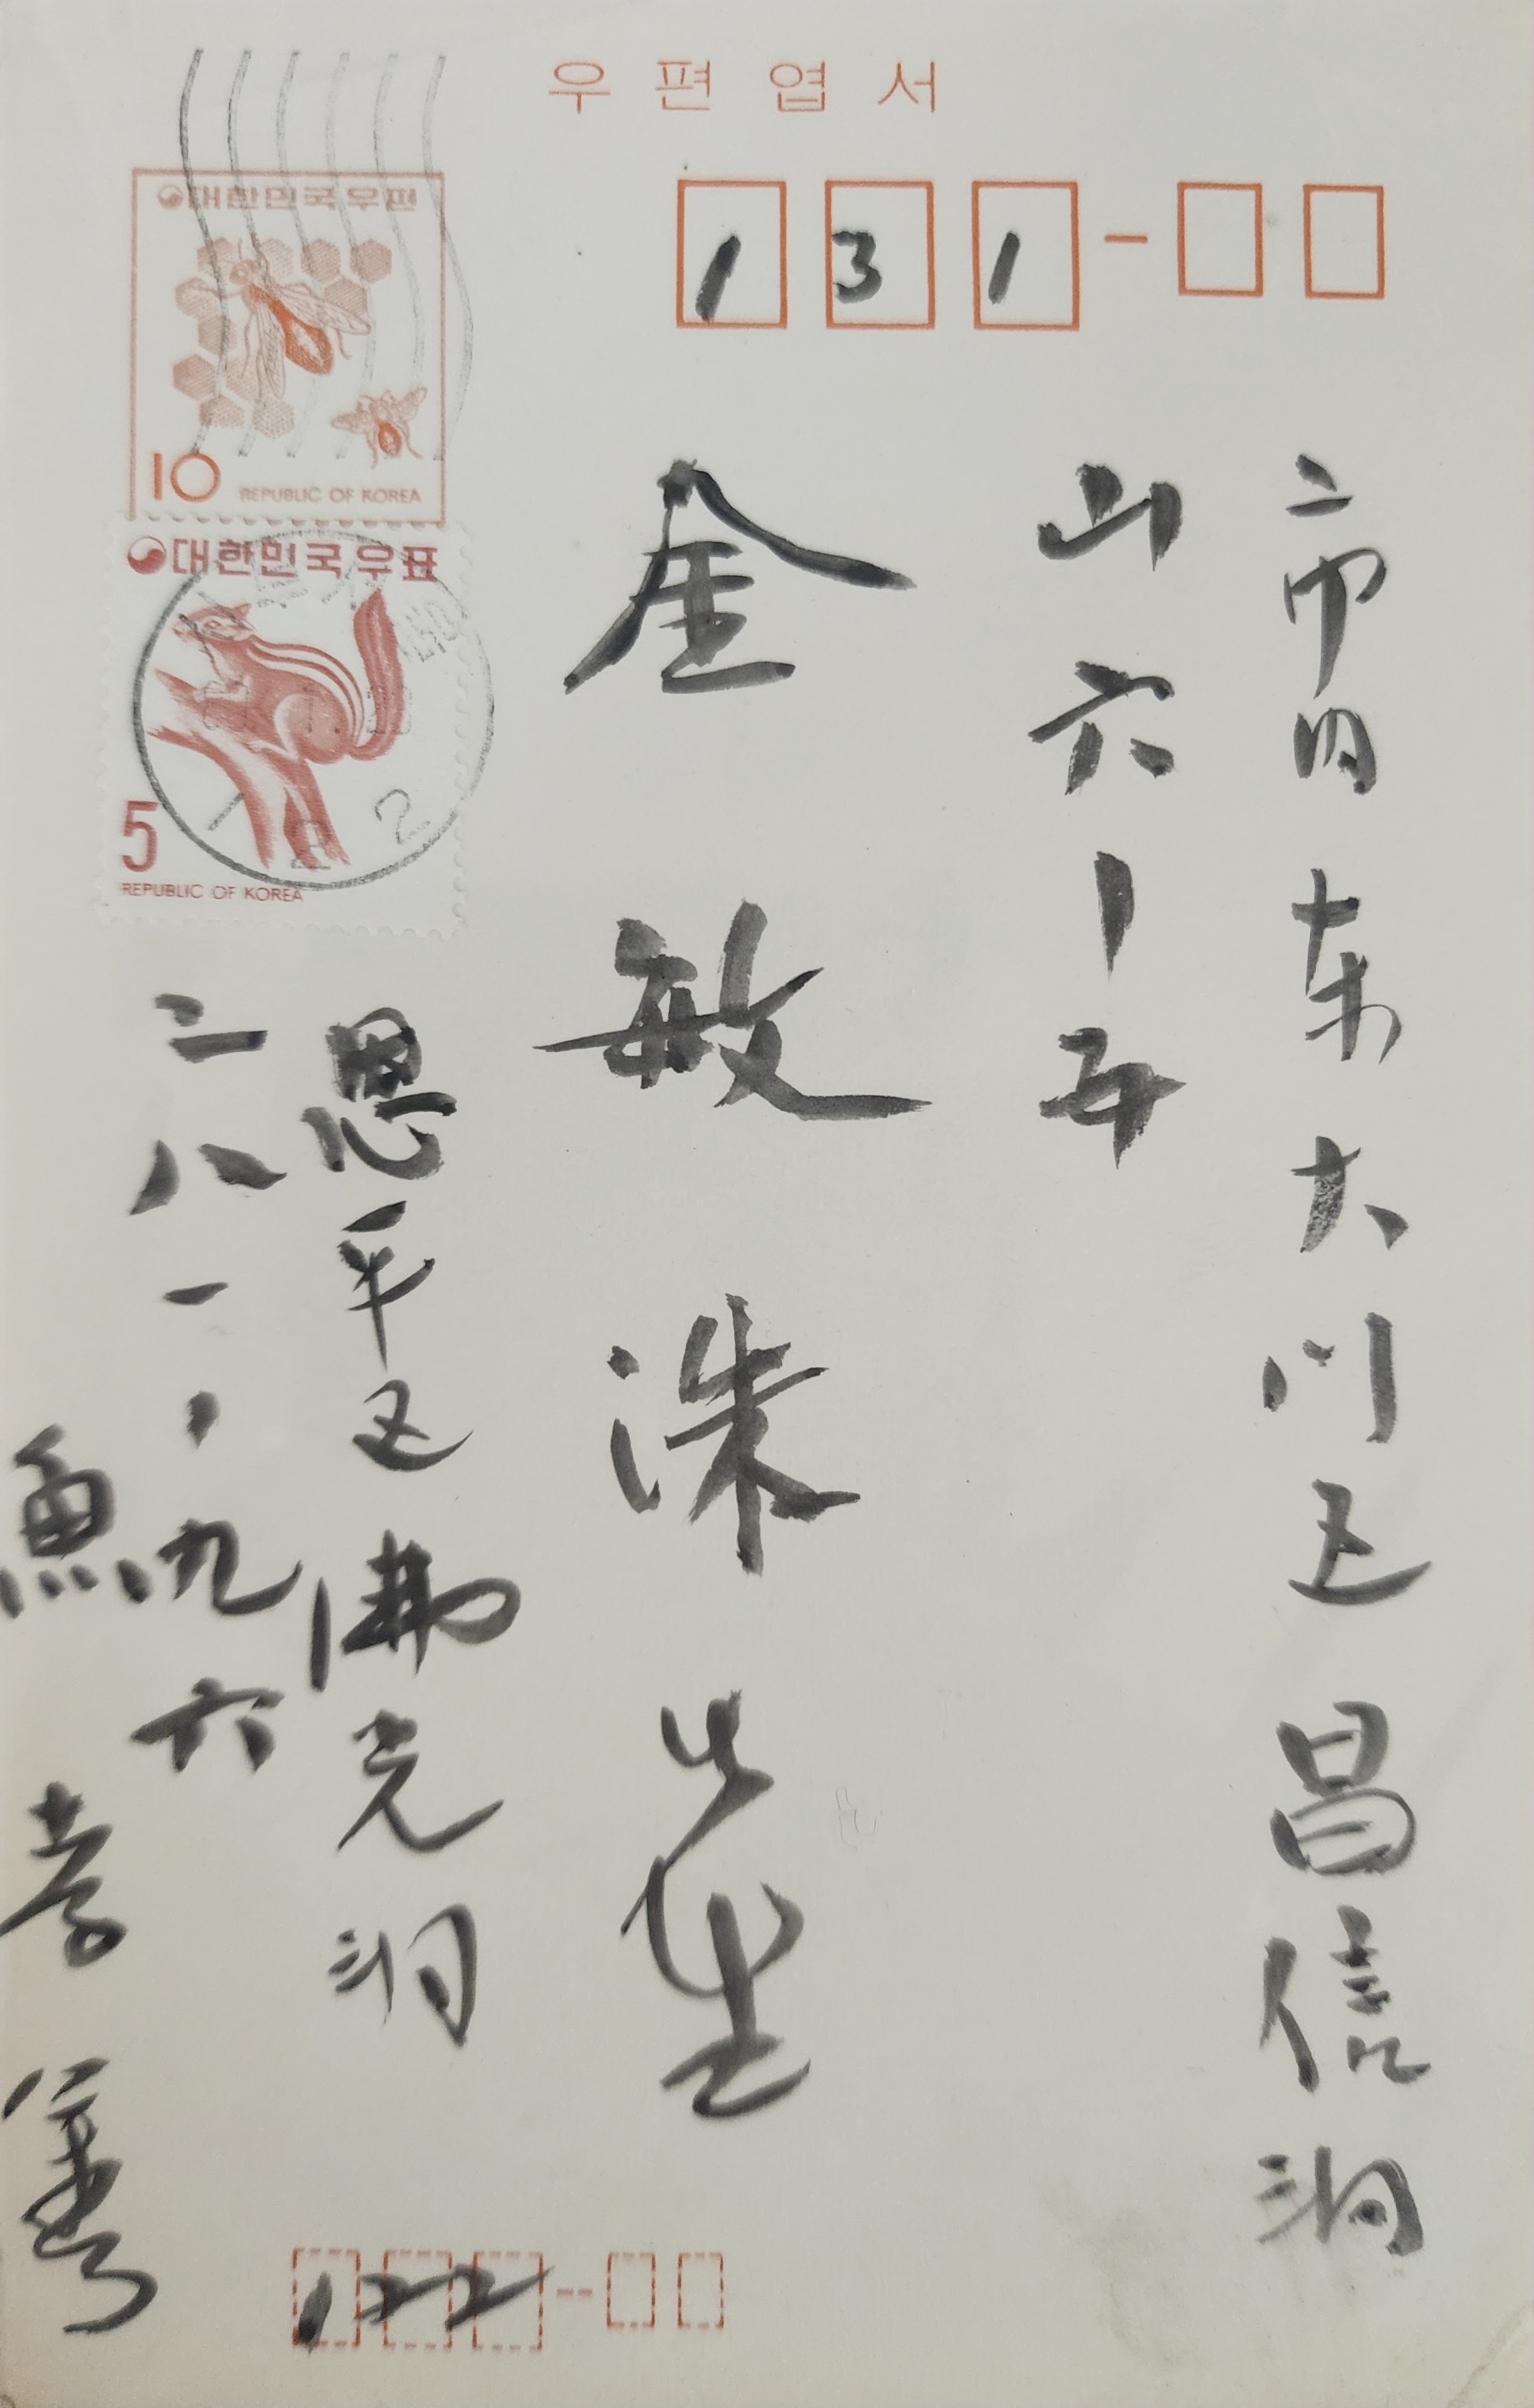 우편엽서
131
市内 东大门区 昌信洞
山六ー五
金敏洙 先生
대한민국우편
10 REPUBLIC OF KOREA
대한민국우표
5
REPUBLIC OF KOREA
恩平区 佛光洞
二八一、九六
魚孝善
122